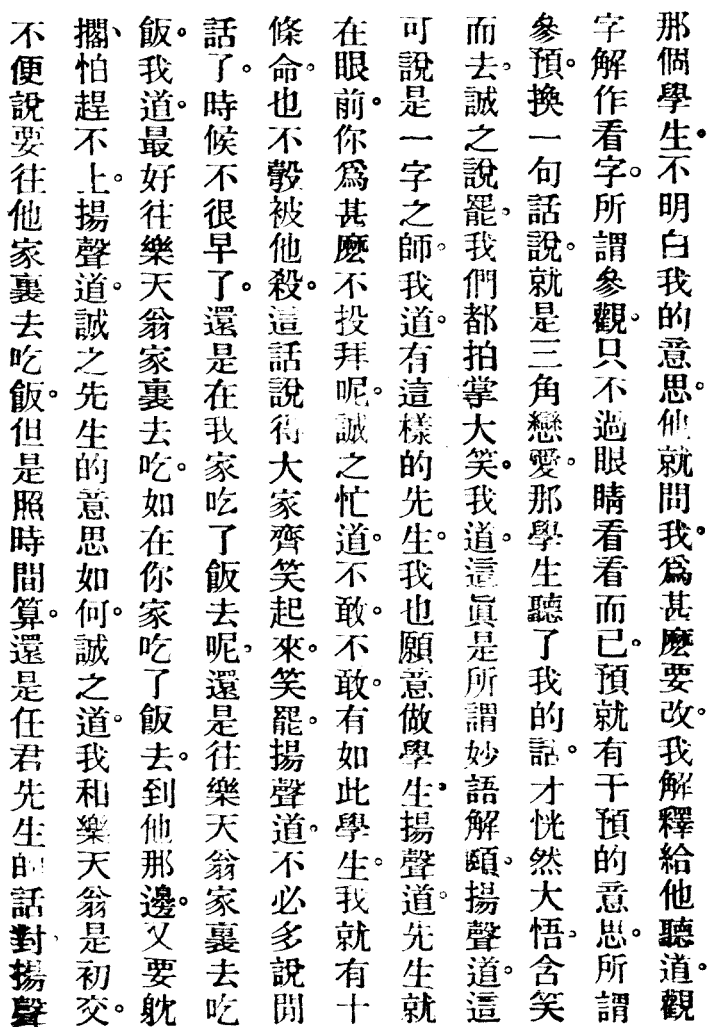 那個學生。不明白我的意思。他就問我。爲甚麽要改。我解釋給他聽道。觀
字解作看字。所謂參觀。只不過眼睛看看而已。預就有干預的意思。所謂
參預。換一句話說。就是三角戀愛。那學生聽了我的話。才恍然大悟。含笑
而去。誠之說罷。我們都拍掌大笑。我道。這眞是所謂妙語解頤。揚聲道。這
可說是一字之師。我道。有這樣的先生。我也願意做學生。揚聲道。先生就
在眼前。你爲甚麽不投拜呢。誠之忙道。不敢。不敢。有如此學生。我就有十
條命。也不彀被他殺。這話說得大家齊笑起來。笑罷。揚聲道。不必多說閒
話了。時候不很早了。還是在我家吃了飯去呢。還是往樂天翁家裏去吃
飯。我道。最好往樂天翁家裏去吃。如在你家吃了飯去。到他那邊。又要躭
擱、怕趕不上。揚聲道。誠之先生的意思如何。誠之道。我和樂天翁是初交。
不便說要往他家裏去吃飯。但是照時間算。還是任君先生的話對、揚聲